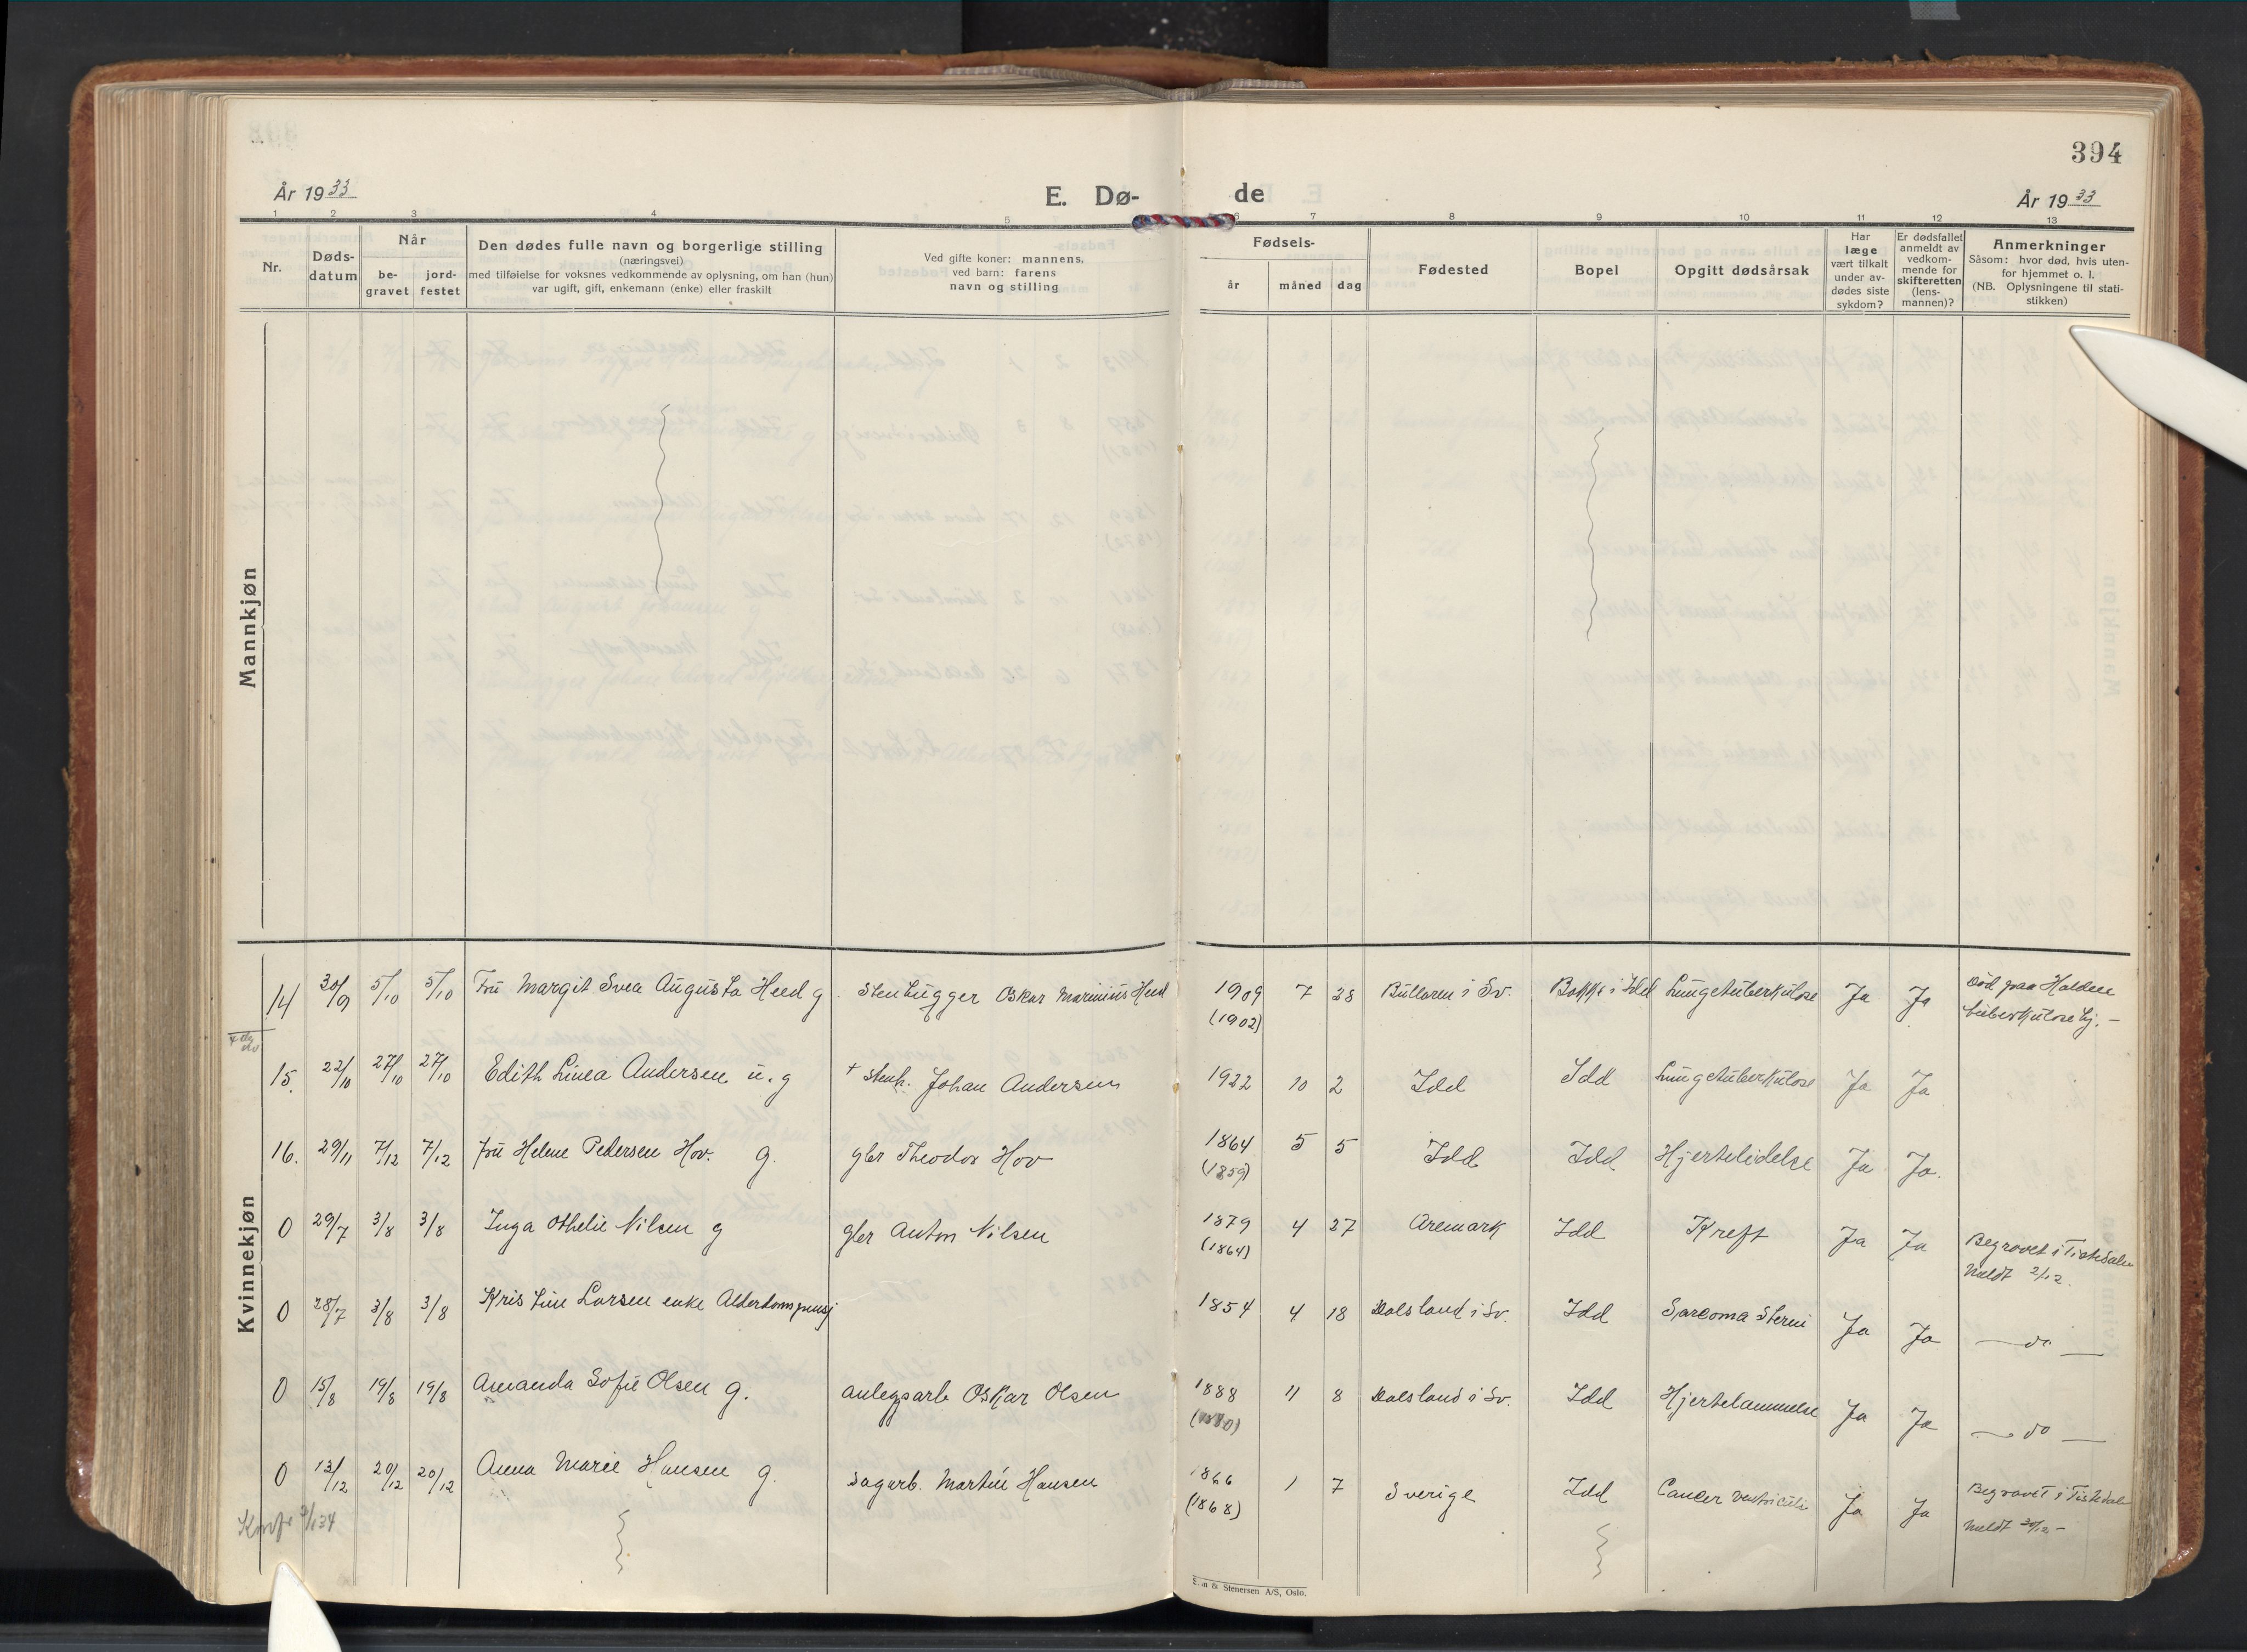 394
År 1933
E. Dø-
de
År 1933
1 2 3 4 5 6 7 8 9 10 11 12 13
Nr.
Døds-
datum
Når
be-
gravet
jord-
festet
Den dødes fulle navn og borgerlige stilling
(næringsvei)
med tilføielse for voksnes vedkommende av oplysning, om han (hun)
var ugift, gift, enkemann (enke) eller fraskilt
Ved gifte koner: mannens,
ved barn: farens
navn og stilling
Fødsels-
år
måned
dag
Fødested
Bopel
Opgitt dødsårsak
Har
læge
vært tilkalt
under av-
dødes siste
sykdom?
Er dødsfallet
anmeldt av
vedkom-
mende for
skifteretten
(lens-
mannen)?
Anmerkninger
Såsom: hvor død, hvis uten-
for hjemmet o. l.
(NB. Oplysningene til stati-
stikken)
Mannkjøn
Kvinnekjøn
14 30/9 5/10 5/10 Fru Margit Svea Augusta Heed g. Stenhugger Oskar Marinius Heed 1909 7 28 Bullaren i Sv. Bakke i Idd Lungetuberkulose Ja Ja Død paa Halden
(1902) tuberkulosehj. –
15. 22/10 27/10 27/10 Edith Linea Andersen u. g + stenh. Johan Andersen 1922 10 2 Idd Idd Lungetuberkulose Ja Ja
16. 29/11 7/12 7/12 fru Helene Pedersen Hov. g. gbr Theodor Hov 1864 5 5 Idd Idd Hjertelidelse Ja Ja.
(1859)
0 29/7 3/8 3/8 Inga Othelie Nilsen g gbr Anton Nilsen 1879 4 27 Aremark Idd Kreft Ja Ja Begravet i Tistedalen
(1864) meldt 2/12.
0 28/7 3/8 3/8 Kristine Larsen enke Alderdomspensj 1854 4 18 Dalsland i Sv. Idd Sarcoma Sterni Ja Ja — do —
0 15/8 19/8 19/8 Amanda Sofie Olsen g. anlegsarb Oskar Olsen 1888 11 8 Dalsland i Sv. Idd Hjertelammelse Ja Ja — do —
0 13/12 20/12 20/12 Anna Marie Hansen g. sagarb. Martin Hansen 1866 1 7 Sverige Idd Cancer ventriculi Ja Ja Begravet i Tistedalen
(1868) meldt 30/12 –
Konf. 3/1 34
& Stenersen A/S, Oslo.